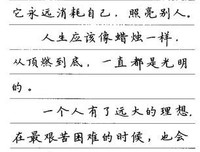 它永远消耗自己，照亮别人。
人生应该像蜡烛一样.
从顶燃到底，一直都是光明
的。
一个人有了远大的理想.
在最艰苦困难的时候，也会